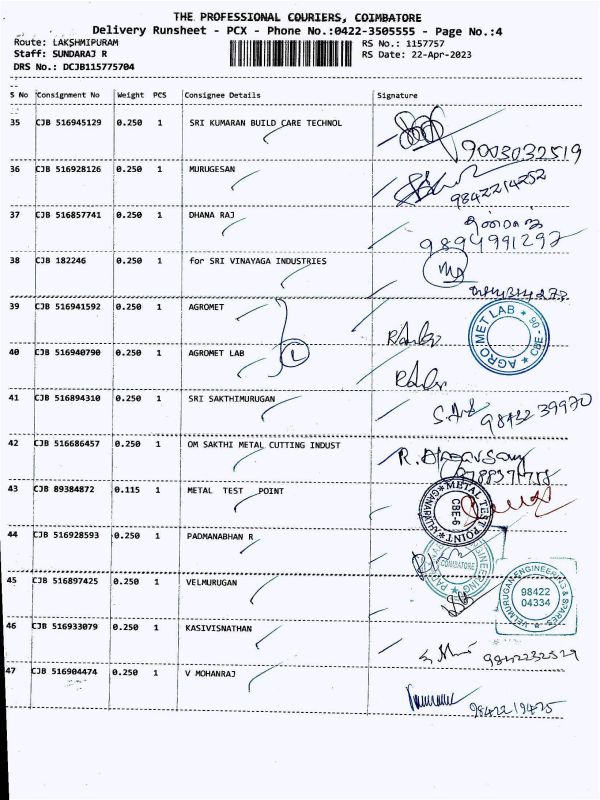 THE PROFESSIONAL COURIERS, COIMBATORE
Delivery Runsheet - PCX - Phone No.:0422-3505555 - Page No.:4
Route: LAKSHMIPURAM RS No.: 1157757
Staff: SUNDARAJ R RS Date: 22-Apr-2023
DRS No.: DCJB115775704
S No Consignment No Weight PCS Consignee Details Signature
35 CJB 516945129 0.250 1 SRI KUMARAN BUILD CARE TECHNOL
9003032519
36 CJB 516928126 0.250 1 MURUGESAN
9842214252
37 CJB 516857741 0.250 1 DHANA RAJ
9894991297
38 CJB 182246 0.250 1 for SRI VINAYAGA INDUSTRIES
39 CJB 516941592 0.250 1 AGROMET
AGRO MET LAB * 90 - CBE *
40 CJB 516940790 0.250 1 AGROMET LAB
L
41 CJB 516894310 0.250 1 SRI SAKTHIMURUGAN
9842239970
42 CJB 516686457 0.250 1 OM SAKTHI METAL CUTTING INDUST
43 CJB 89384872 0.115 1 METAL TEST POINT
METAL TEST POINT
CBE-6
44 CJB 516928593 0.250 1 PADMANABHAN R
ENGINEERING
COIMBATORE
45 CJB 516897425 0.250 1 VELMURUGAN
VELMURUGAN ENGINEERING & SPARES
98422
04334
46 CJB 516933079 0.250 1 KASIVISNATHAN
9842232529
47 CJB 516904474 0.250 1 V MOHANRAJ
9842219425